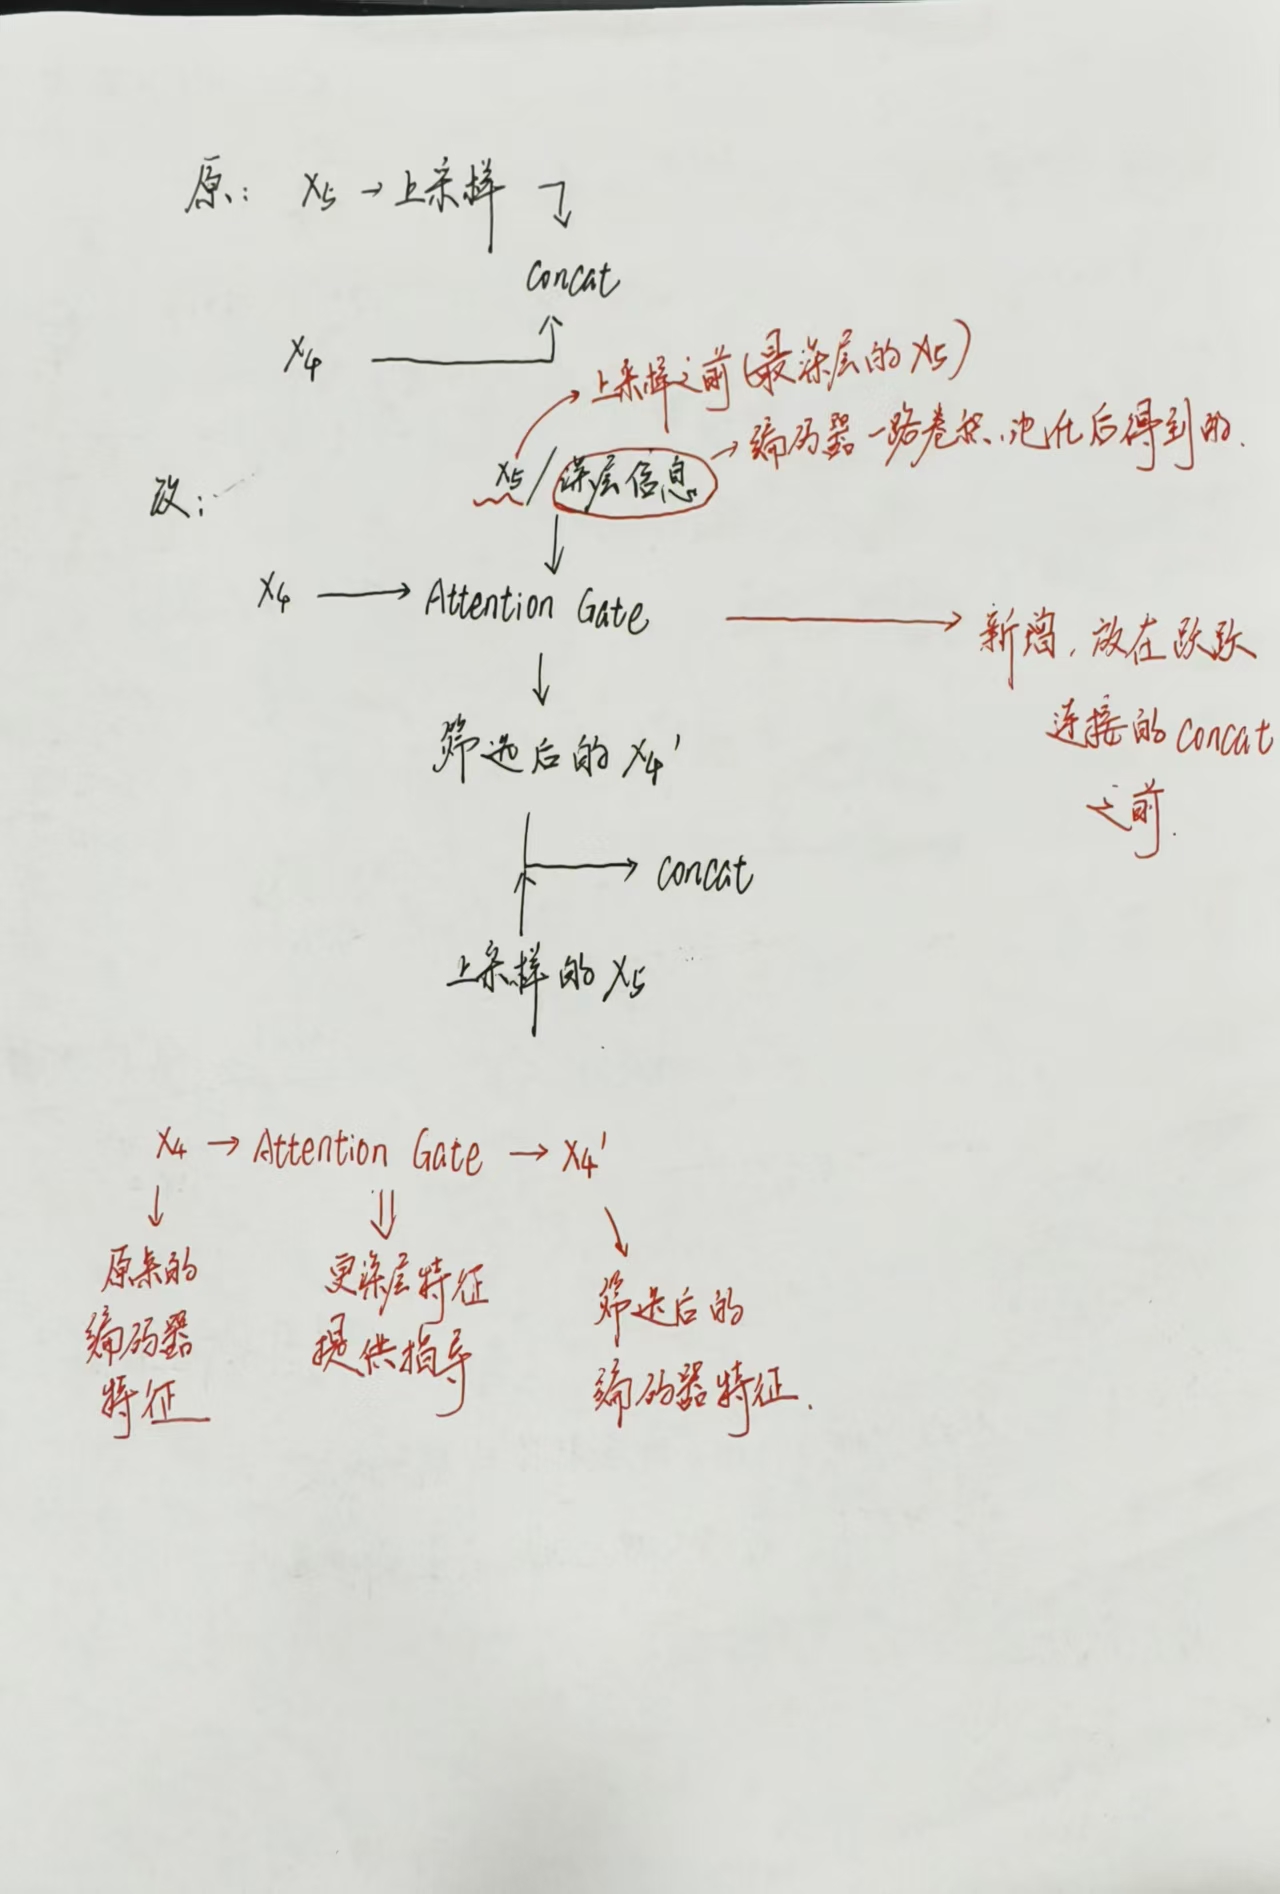 原: X5 → 上采样
concat
X4
上采样之前(最深层的X5)
编码器一路卷积、池化后得到的.
X5/深层信息
改:
X4 → Attention Gate
新增, 放在跃跃
连接的concat
之前.
筛选后的X4'
→ concat
上采样的X5
X4 → Attention Gate → X4'
原来的
编码器
特征
更深层特征
提供指导
筛选后的
编码器特征.